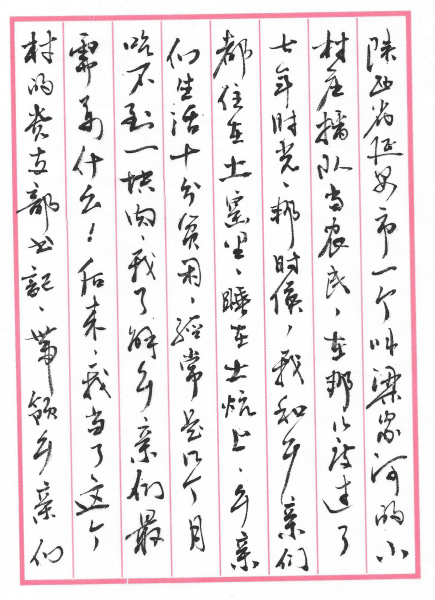 陕西省延安市一个叫梁家河的小
村庄插队当农民，在那儿度过了
七年时光，那时候，我和乡亲们
都住在土窑里、睡在土炕上，乡亲
们生活十分贫困，经常是几个月
吃不到一块肉，我了解乡亲们最
需要什么！后来，我当了这个
村的党支部书记，带领乡亲们